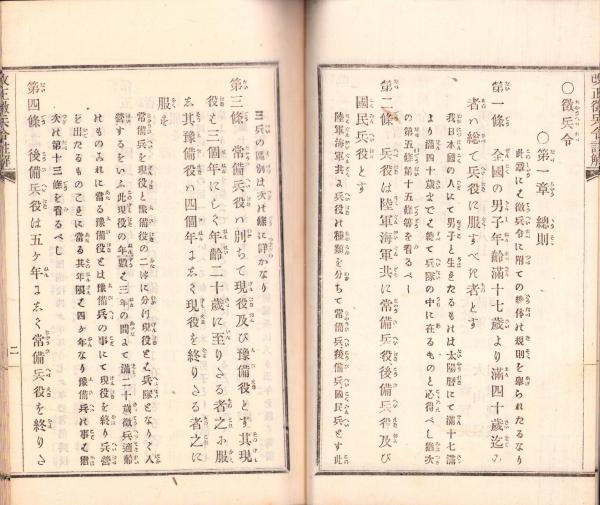 改正徴兵令註解
〇徴兵令
〇第一章 總則
此章にハ徴兵令に附ての總体の規則を擧られたるなり
第一條 全國の男子年齡滿十七歳より滿四十歳迄の
者ハ總て兵役に服すべき者とす
我日本國の人にて男子と生まれたるものは太陽暦にて滿十七歳
より滿四十歳までハ總て兵隊の中に在るものと心得べし尚次
の第五條第十五條等を看るべし
第二條 兵役は陸軍海軍共に常備兵役後備兵役及び
國民兵役とす
陸軍海軍共ニ兵役の種類を分ちて常備兵後備兵國民兵とす此
三兵の區別は次の條に詳かなり
第三條 常備兵役ハ別ちて現役及び豫備役とす其現
役ハ三個年にして年齡二十歳に至りたる者之に服
し其豫備役ハ四個年にして現役を終りたる者之に
服す
常備兵を現役と豫備役の二樣に分け現役とハ兵隊となりて入
營するをいふ此現役の年數ハ三年の間にて滿二十歳徴兵適齡
のもの之れに當る豫備役とは豫備兵の事にて現役を終り兵營
を出たるもの之に當る其年限ハ四ケ年なり豫備兵の事ハ尚
次の第十三條を看るべし
第四條 後備兵役は五ケ年にして常備兵役を終りた
改正徴兵令註解
二